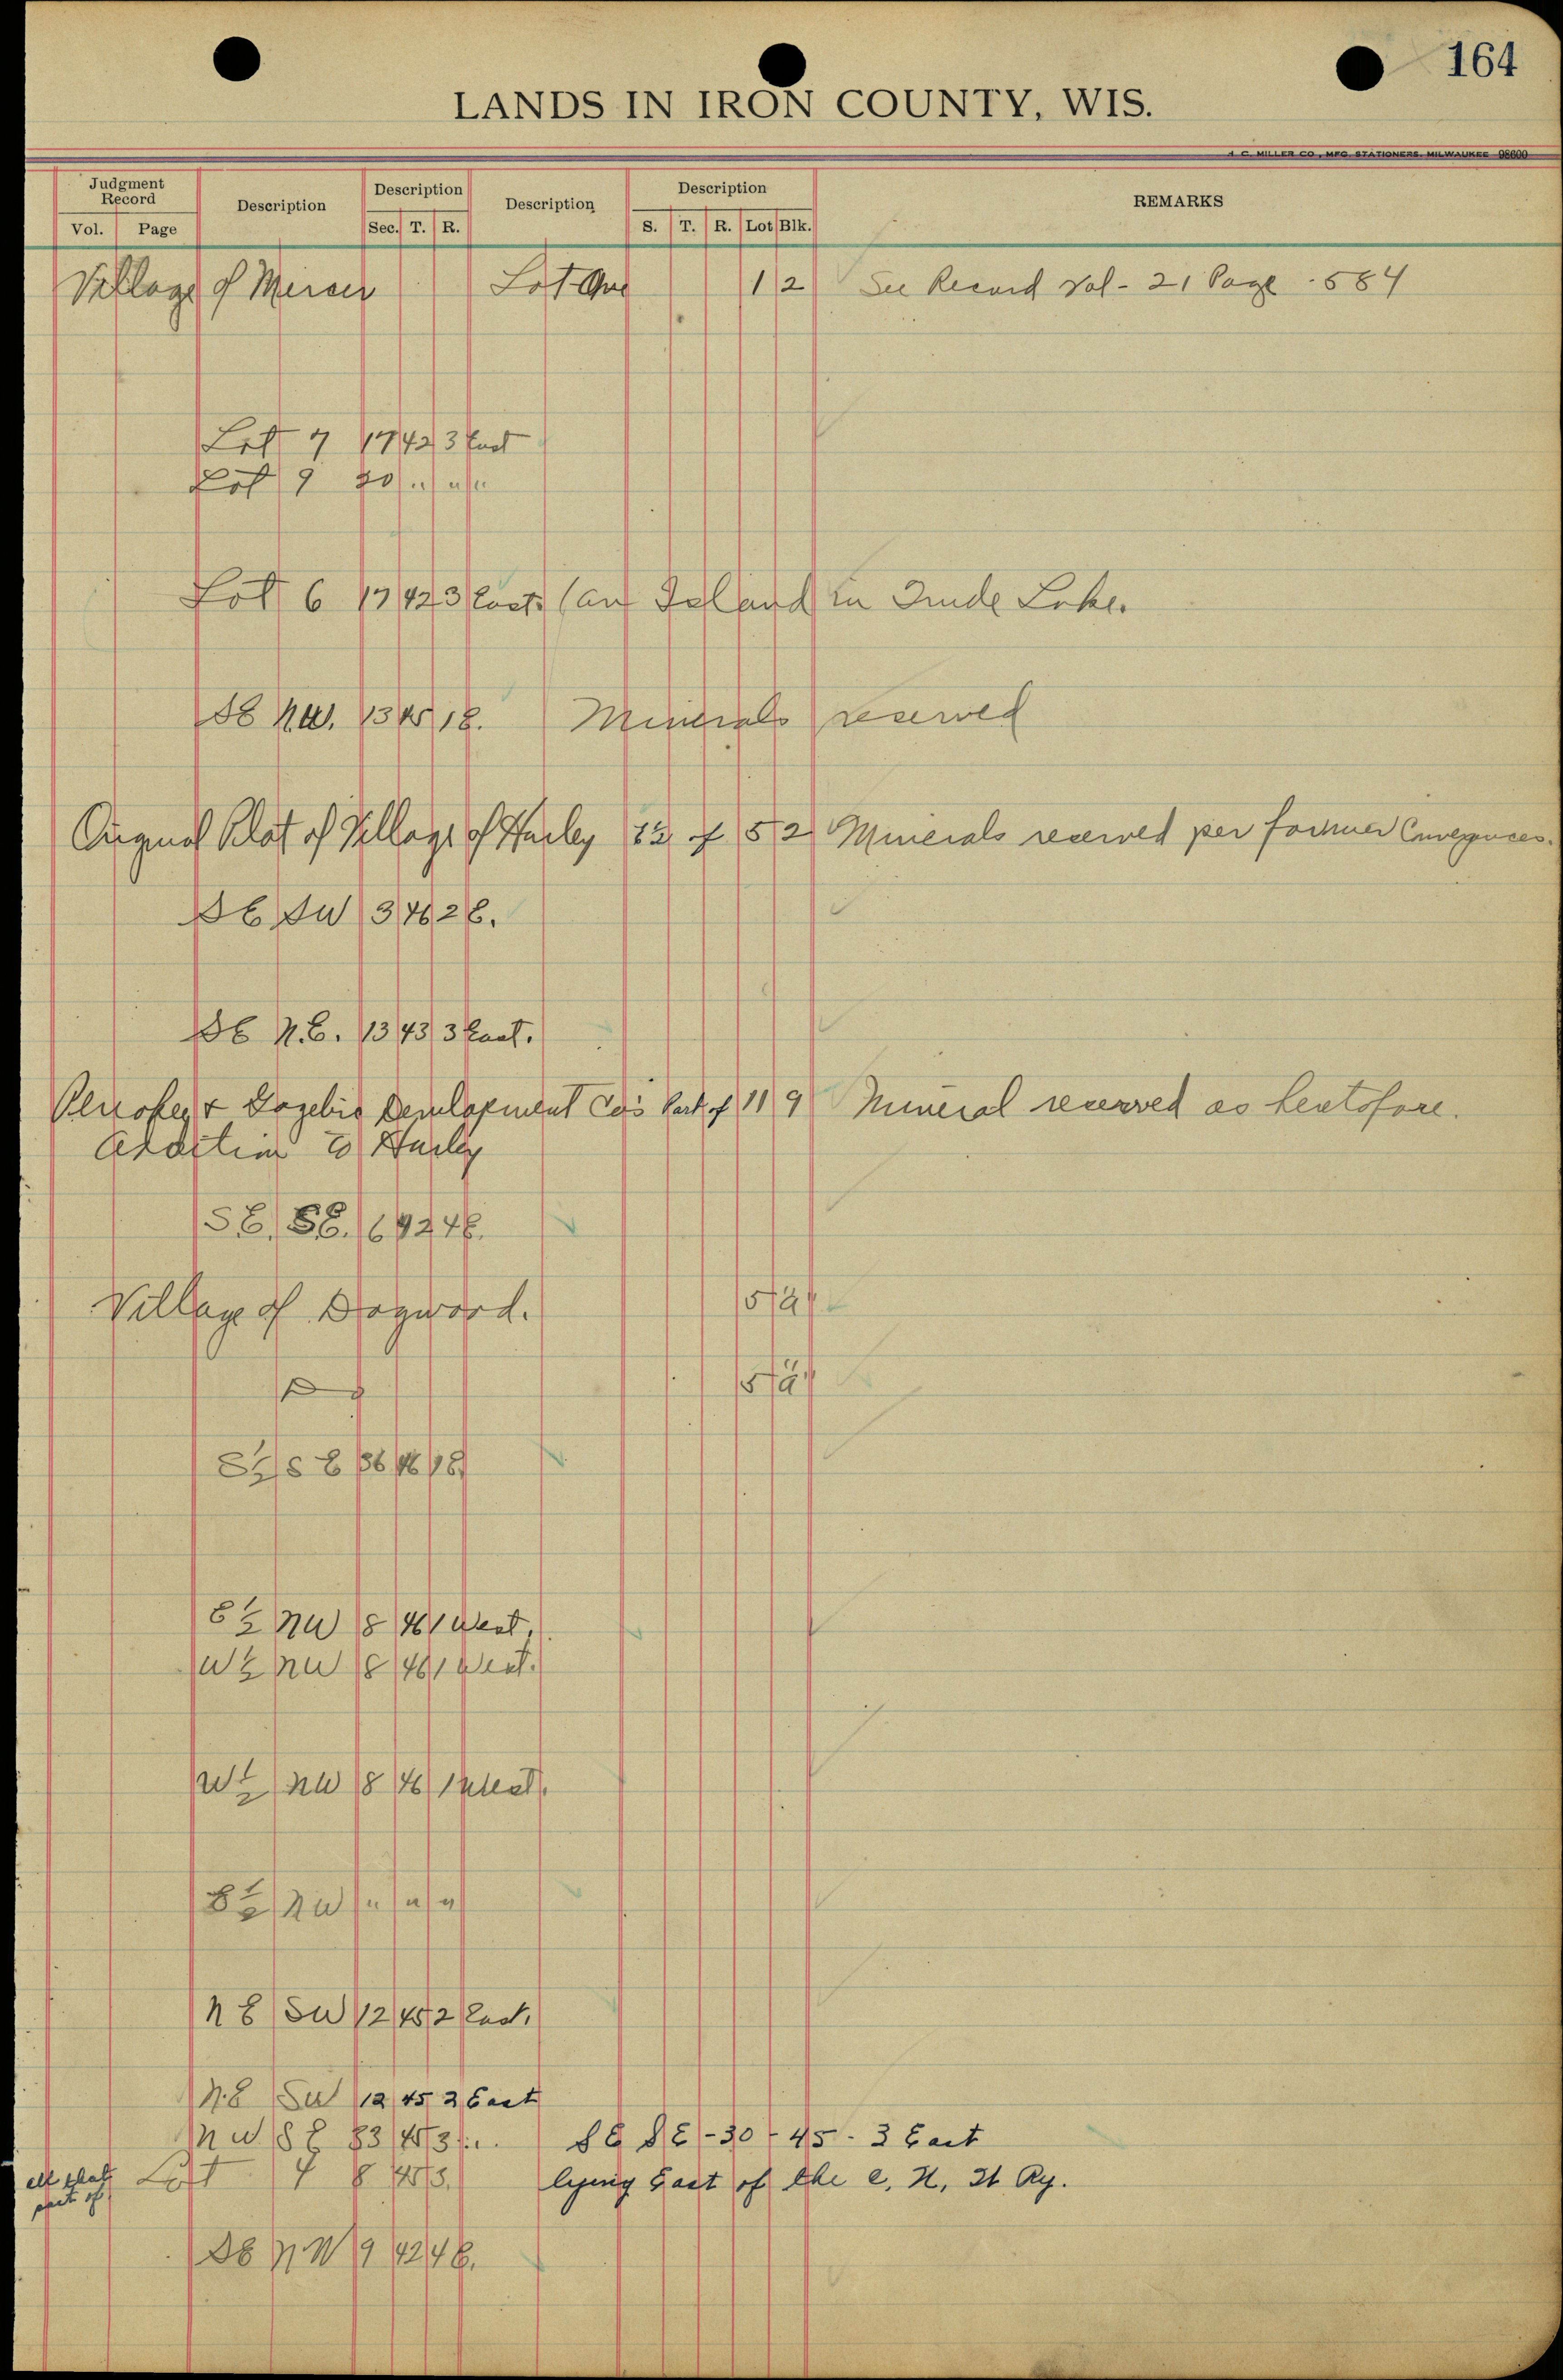 164
LANDS IN IRON COUNTY, WIS.
A. C. MILLER CO., MFG. STATIONERS, MILWAUKEE 98600
Judgment Record Description Description Description Description REMARKS
Vol. Page Sec. T. R. S. T. R. Lot Blk.
Village of Mercer Lot One 1 2 See Record Vol - 21 Page 584
Lot 7 17 42 3 East
Lot 9 20 " " "
Lot 6 17 42 3 East (an Island in Trude Lake.
SE NW. 13 45 1E. Minerals reserved
Original Plat of Village of Hurley 12 of 5 2 Minerals reserved per former Conveyances.
SE SW 3 46 2E.
SE N.E. 13 43 3 East.
Penokee & Gogebic Development Co's Part of 11 9 Mineral reserved as heretofore.
Addition to Hurley
SE, SE. 6 42 4E.
Village of Dogwood. 5 4
5 4
S½ SE 36 46 1E
E½ NW 8 46 1 West.
W½ NW 8 46 1 West.
W½ NW 8 46 1 West.
E½ NW " " "
NE SW 12 45 2 East.
N.E SW 12 45 2 East
NW SE 23 45 3 " SE SE - 30 - 45 - 3 East
all that part of Lot 4 8 45 3. lying East of the C, N, St Ry.
SE NW 9 42 4E.